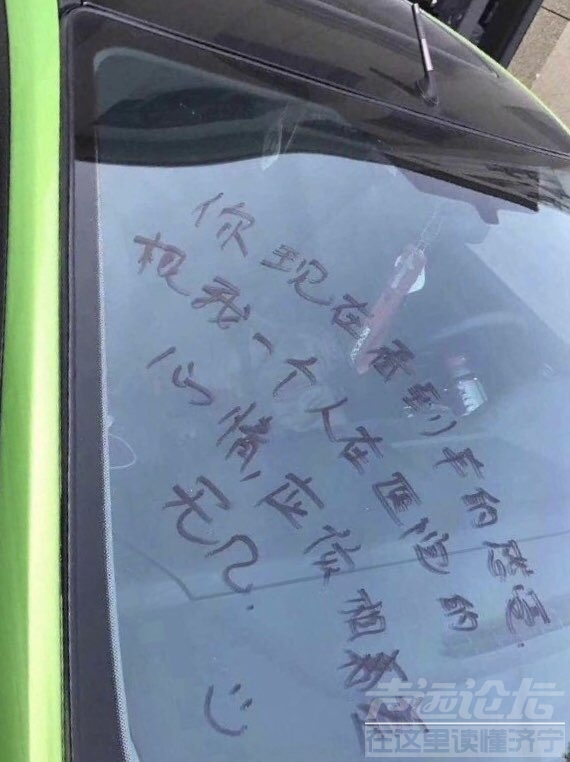 你现在看到车的感受.
我一个人在医院的
心情,应该相差
无几.
:)
志远论坛
在这里读懂济宁